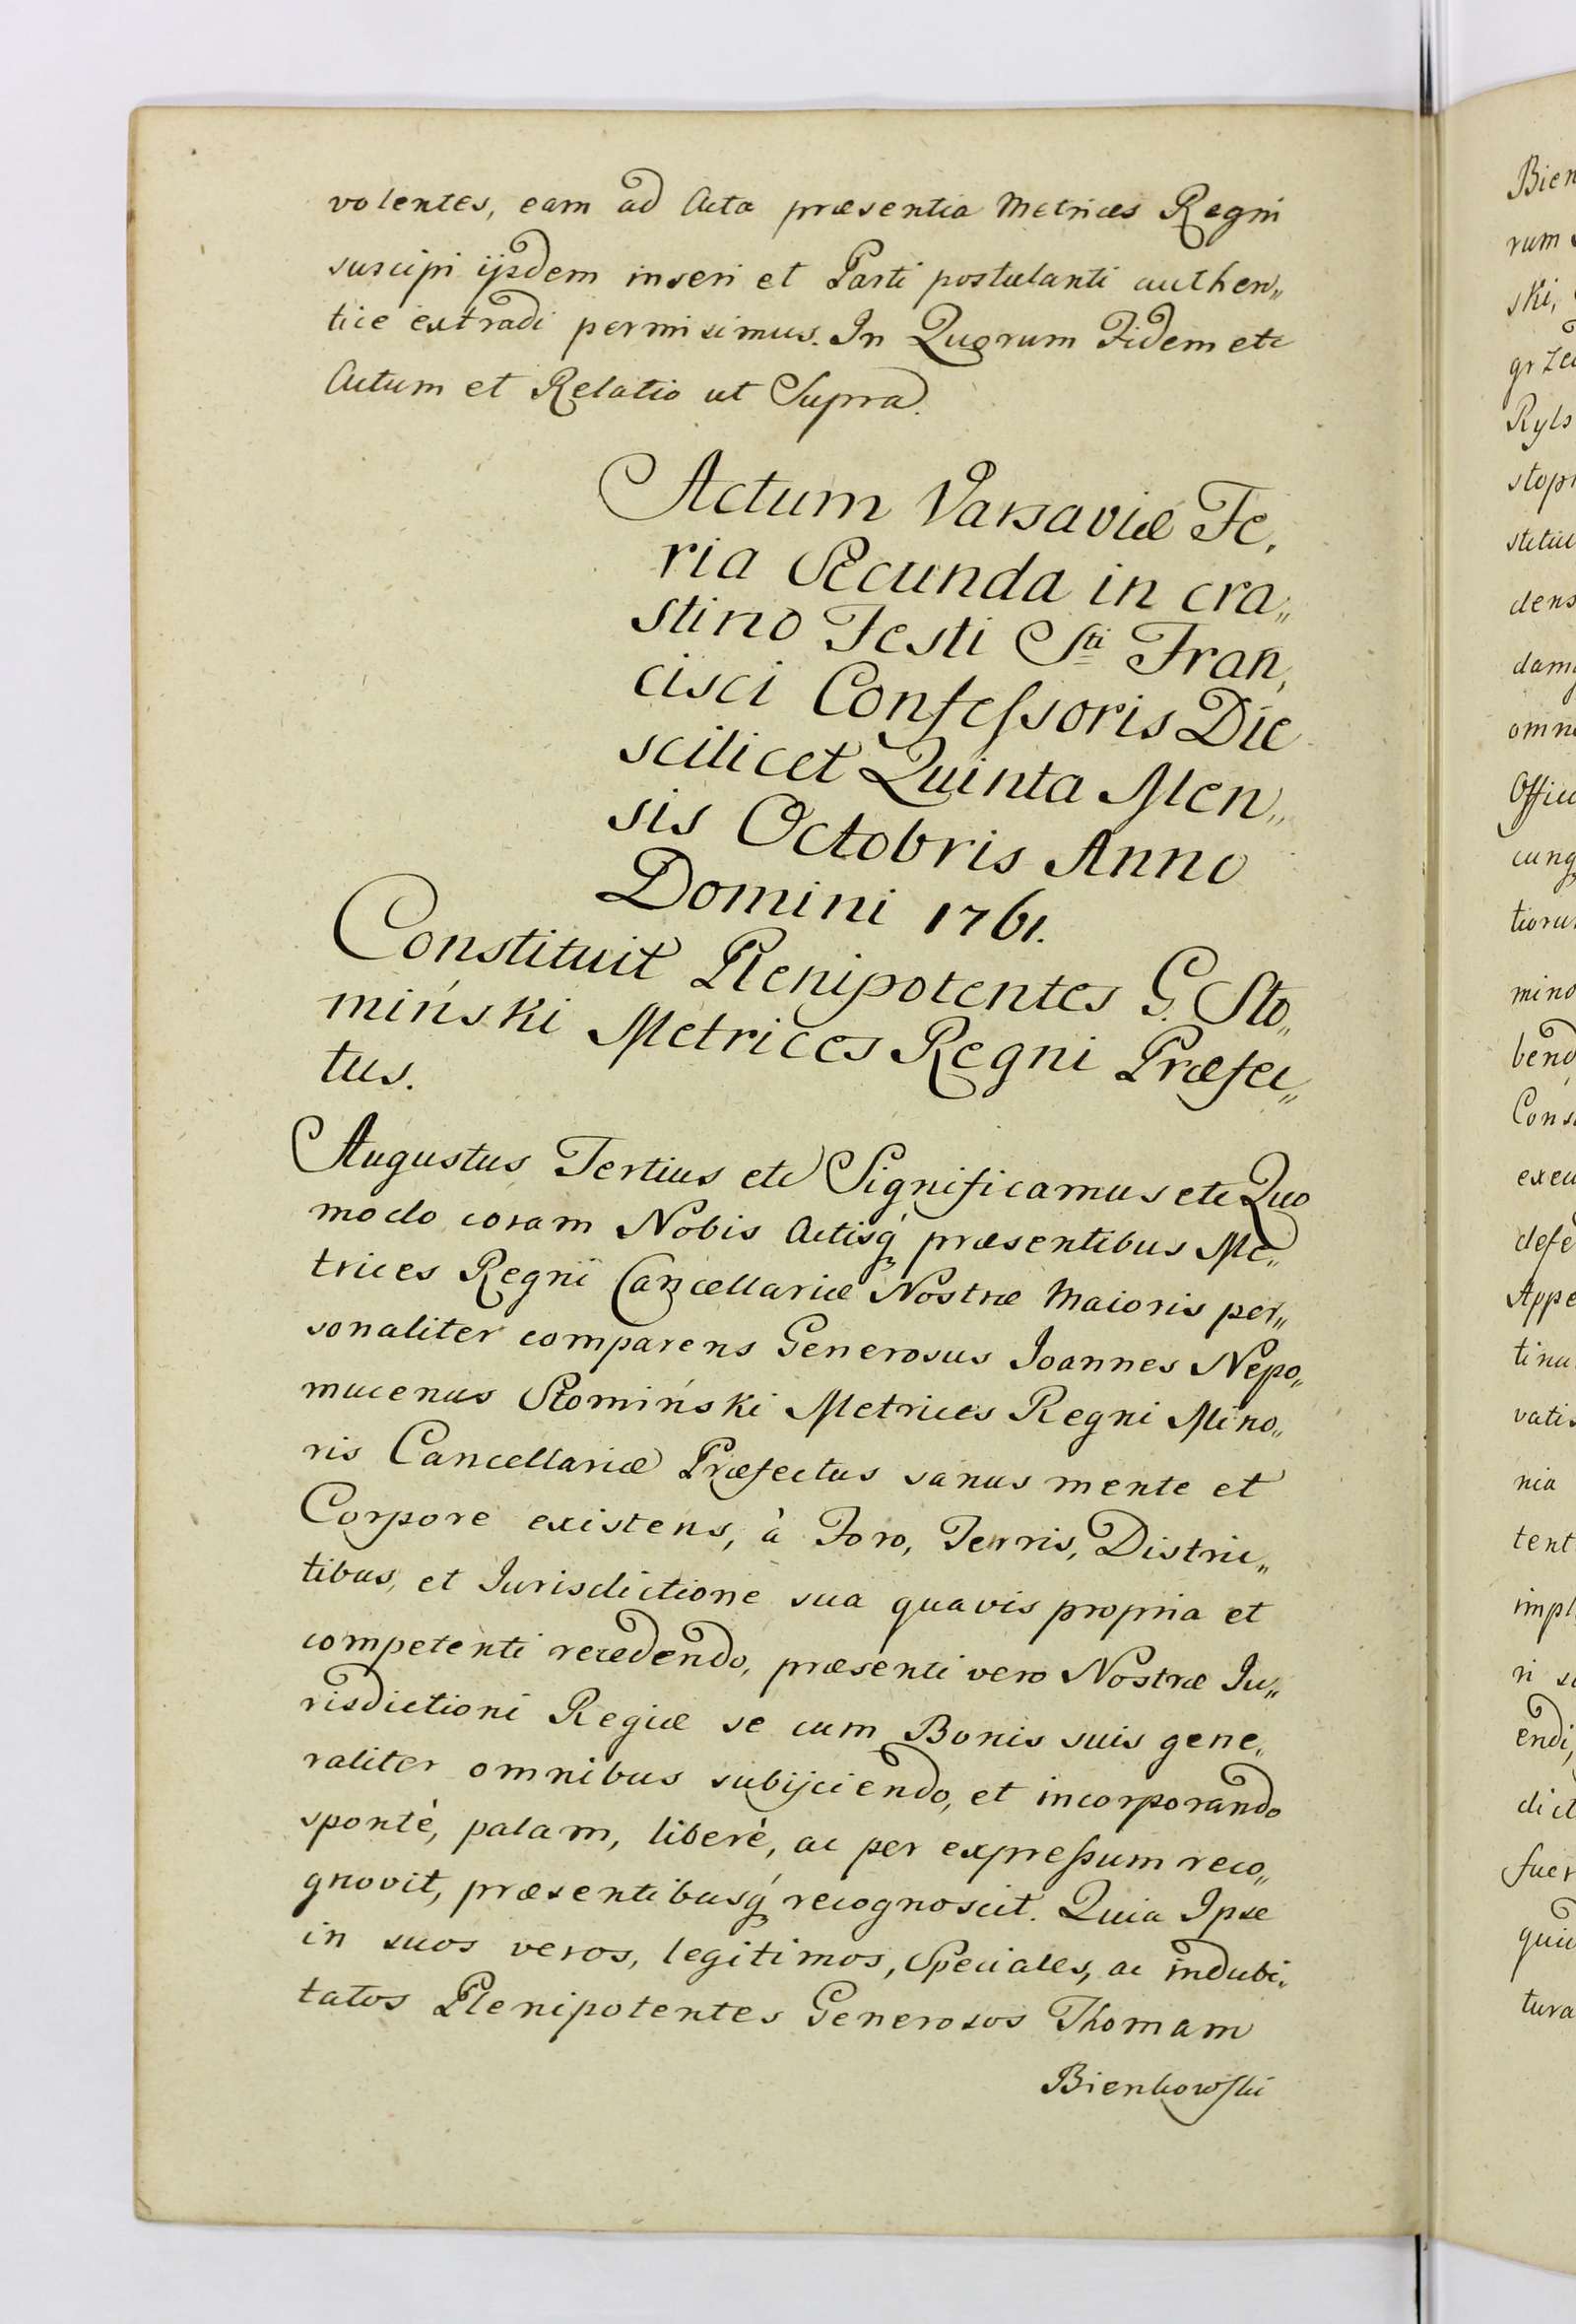 volentes, eam ad Acta præsentia Metrices Regni
suscipi ijsdem inseri et Parti postulanti authen„
tice extradi permisimus. In Quorum Fidem etc
Actum et Relatio ut Supra.
Actum Varsaviæ Fe,
ria Secunda in cra„
stino Festi Sti Fran,
cisci Confeſsoris Die
scilicet Quinta Men„
sis Octobris Anno
Domini 1761.
Constituit Plenipotentes G. Sło„
miński Metrices Regni Præfec„
tus.
Augustus Tertius etc Significamus etc Quo
modo coram Nobis Actisq́ præsentibus Me„
trices Regni Cancellariæ Nostræ Maioris per„
sonaliter comparens Generosus Joannes Nepo„
mucenus Słomiński Metrices Regni Mino„
ris Cancellariæ Præfectus sanus mente et
Corpore existens, à Foro, Terris, Distric„
tibus, et Jurisdictione sua quavis propria et
competenti recedendo, præsenti vero Nostræ Ju„
risdictioni Regiæ se cum Bonis suis gene„
raliter omnibus subijciendo, et incorporando
spontè, palam, liberè, ac per expreſsum reco„
gnovit, præsentibusq́ recognoscit. Quia Ipse
in suos veros, legitimos, Speciales, ac indubi„
tatos Plenipotentes Generosos Thomam
Bienkowſki
Bien
rum
ski,
Ryls
stop
dens
omn
mino
bend
Cons
exec
defe
Appe
tinu
vatis
nia
tent
impl
endi,
dict
fuer
tura